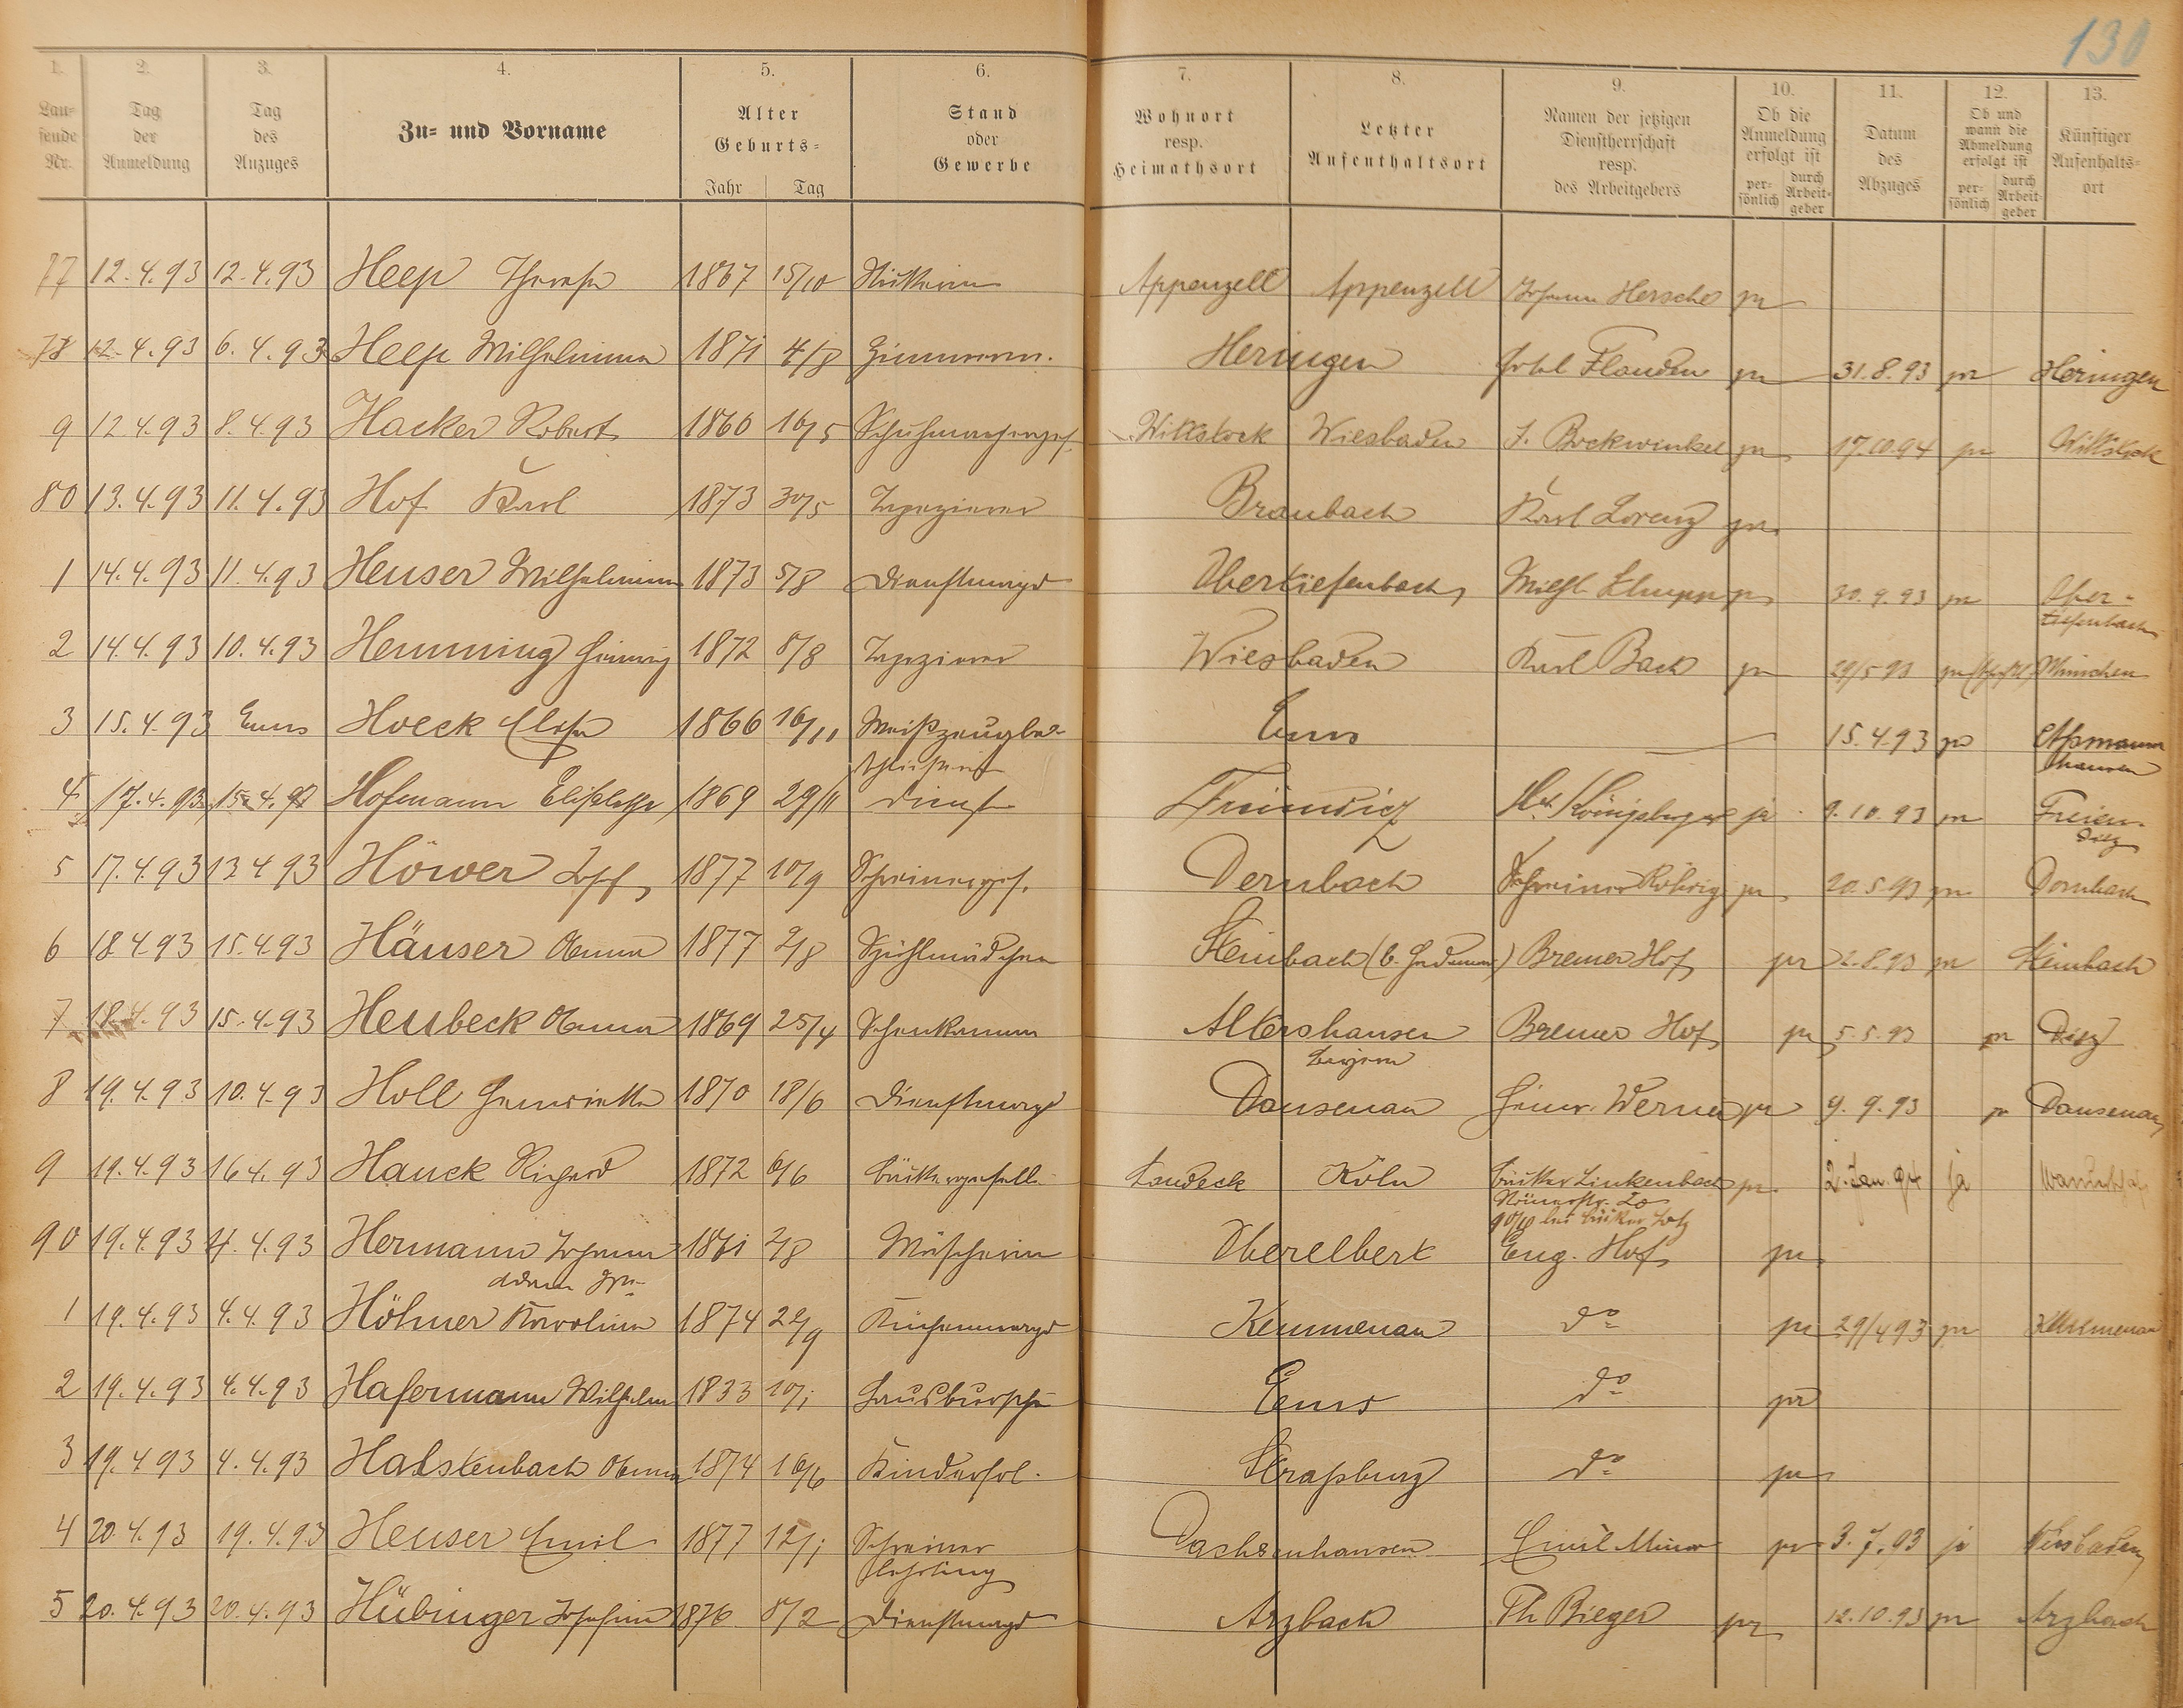 130
1. 2. 3. 4. 5. 6. 7. 8. 9. 10. 11. 12. 13.
Laufende Nr. Tag der Anmeldung Tag des Anzuges Zu- und Vorname Alter Geburts- Jahr Tag Stand oder Gewerbe Wohnort resp. Heimathsort Letzter Aufenthaltsort Namen der jetzigen Dienstherrschaft resp. des Arbeitgebers Ob die Anmeldung erfolgt ist persönlich durch Arbeitgeber Datum des Abzuges Ob und wann die Abmeldung erfolgt ist persönlich durch Arbeitgeber Künftiger Aufenthaltsort
77 12.4.93 12.4.93 Heep Therese 1867 15/10 Stickerin Appenzell Appenzell Johann Hersche pr
78 12.4.93 6.4.93 Heep Wilhelmine 1871 4/8 Zimmerm. Heringen Flanden pr 31.8.93 pr Heringen
9 12.4.93 8.4.93 Hacker Robert 1860 16/5 Schuhmacherges. Wittstock Wiesbaden J. Bockwinkel pr 17.10.94 pr Wittstock
80 13.4.93 11.4.93 Hof Karl 1873 30/5 Tapezierer Braubach Karl Lorenz pr
1 14.4.93 11.4.93 Heuser Wilhelmine 1873 5/8 Dienstmagd Obertiefenbach pr 30.9.93 pr Ober-
tiefenbach
2 14.4.93 10.4.93 Hemming Heinrich 1872 8/8 Tapezierer Wiesbaden Karl Back pr 29/5 93 pr München
3 15.4.93 Ems Hoeck Elise 1866 16/11 Weißzeugbe- Ems 15.4.93 pr Aßmanns
schließerin hausen
4 17.4.93 15.4.93 Hofmann 1869 29/11 Dienst Freiendiez Königsberger ja 9.10.93 pr Freien-
diez
5 17.4.93 13 4 93 Höwer Josef 1877 10/9 Schreinerges. Dernbach Schreiner Röhrig pr 20.5.93 pr Dernbach
6 18.4.93 15.4.93 Häuser Anna 1877 2/8 Spühlmädchen Steinbach (b. Hadamar) Bremer Hof pr 2.8.93 pr Steinbach
7 18.4.93 15.4.93 Heubeck Anna 1869 25/4 Altershausen Bremer Hof pr 5.5.93 pr Diez
Bayern
8 19.4.93 10.4.93 Holl Henriette 1870 18/6 Dienstmagd Dausenau Heinr. Werner pr 9.9.93 pr Dausenau
9 19.4.93 16 4.93 Hauck Richard 1872 6/6 Bäckergeselle Landeck Köln Bäcker Linkenbach pr 2. Jan. 94 ja
Römerstr. 20
bei Bäcker Lotz
90 19.4.93 4.4.93 Hermann Johann 1871 2/8 Wäscherin Oberelbert Eng. Hof pr
Adam
1 19.4.93 4.4.93 Höhner Karoline 1874 22/9 Küchenmagd Kemmenau do pr 29/4 93 pr Kemmenau
2 19.4.93 4.4.93 Hafermann Wilhelm 1833 10/1 Hausbursche Ems do pr
3 19.4 93 4.4.93 Halstenbach Anna 1874 16/6 Kinderfrl. Straßburg do pr
4 20.4.93 19.4.93 Heuser Emil 1877 12/1 Schreiner Dachsenhausen Emil Minor pr 3.7.93 ja Wiesbaden
Lehrling
5 20.4.93 20.4.93 Hübinger Josefine 1876 8/2 Dienstmagd Arzbach Th. Bieger pr 12.10.93 pr Arzbach